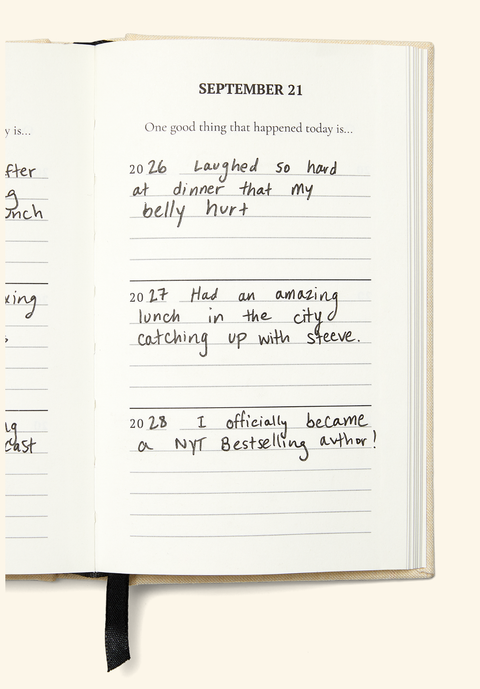 y is...
fter
g
unch
xing
s
ng
cast
SEPTEMBER 21
One good thing that happened today is...
2026 Laughed so hard
at dinner that my
belly hurt
2027 Had an amazing
lunch in the city
catching up with steeve.
2028 I officially became
a NYT Bestselling author!